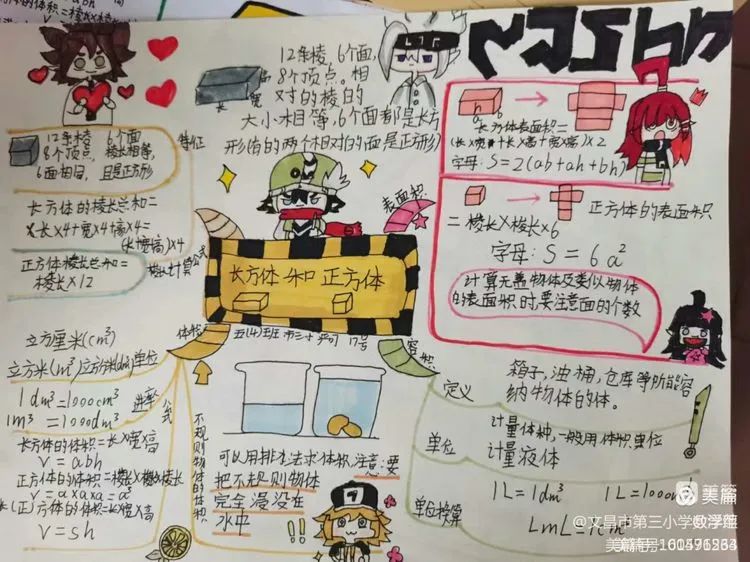 12条棱 6个面
8个顶点, 棱长相等,
6面相同, 且是正方形
特征
长方体的棱长总和=
长×4+宽×4+高×4=
正方体棱长总和=
棱长×12
棱长计算公式
12条棱 6个面,
8个顶点。相
对的棱的
大小相等,6个面都是长方
形(有的两个相对的面是正方形)
长方体表面积=
(长×宽+长×高+宽×高)×2
字母: S=2(ab+ah+bh)
正方体的表面积
=棱长×棱长×6
字母: S=6a²
计算无盖物体及类似物体
的表面积时,要注意面的个数
表面积
长方体和正方体
体积
容积
立方厘米(cm³)
立方米(m³)立方分米(dm³)单位
1dm³=1000cm³
1m³=1000dm³
进率
公式
长方体的体积=长×宽×高
V=abh
正方体的体积=棱长×棱长×棱长
V=a×a×a=a³
V=sh
不规则物体的体积
可以用排水法求体积,注意:要
把不规则物体
完全浸没在
水中
!!
定义
箱子,油桶,仓库等所能容
纳物体的体。
单位
计量体积,一般用体积单位
计量液体
单位换算
1L=1dm³
美篇
@文昌市第三小学